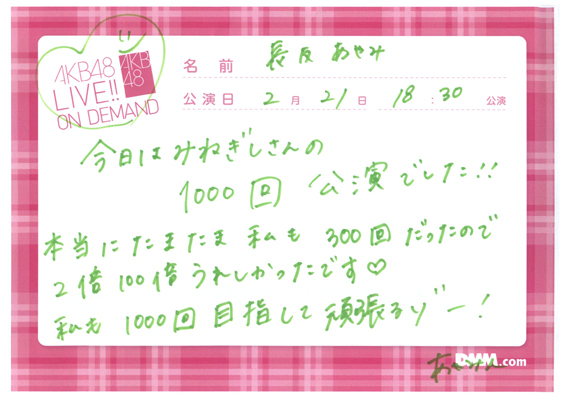 い
AKB48
LIVE!!
ON DEMAND
AKB
48
名前 長友 あやみ
公演日 2月 21日 18:30 公演
今日は みねぎしさんの
1000回 公演でした!!
本当にたまたま 私も 300回 だったので
2倍 100倍 うれしかったです♡
私も 1000回 目指して 頑張るゾー!
DMM.com